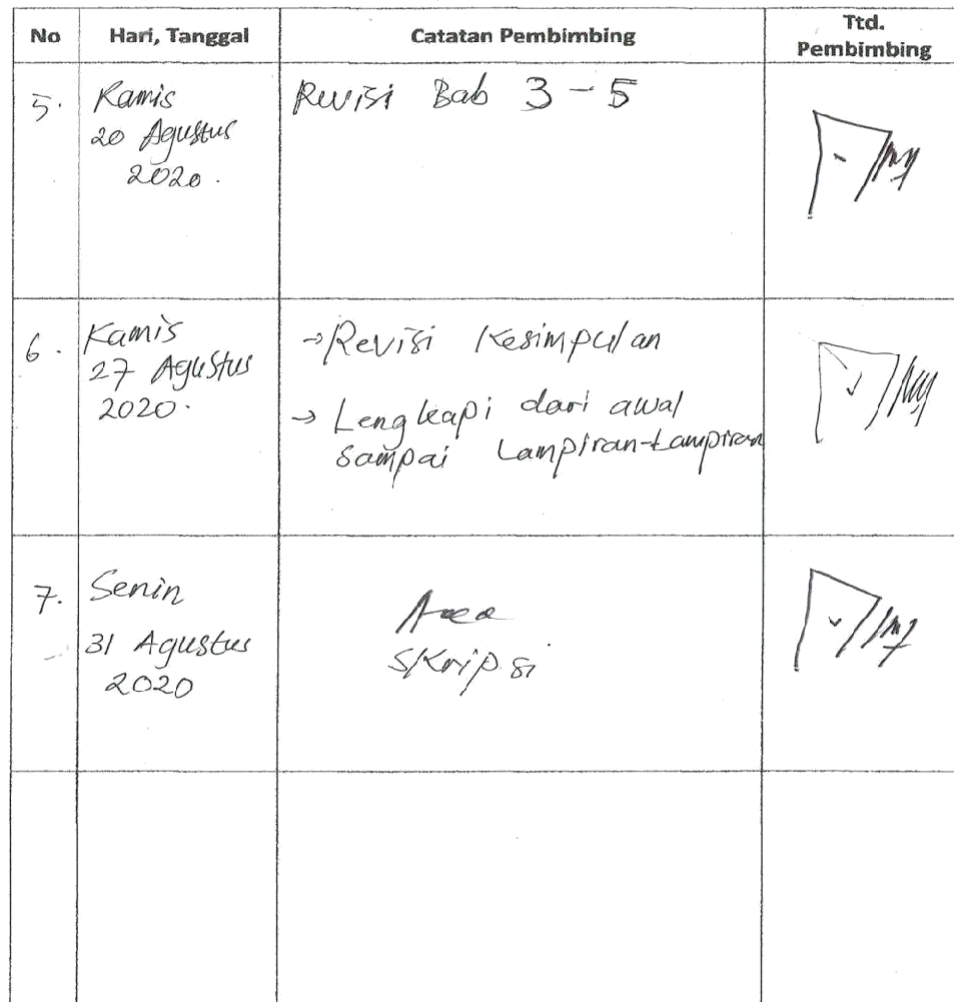 No Hari, Tanggal Catatan Pembimbing Ttd.
Pembimbing
5. Kamis
20 Agustus
2020.
Revisi Bab 3 - 5
6. Kamis
27 Agustus
2020.
→ Revisi Kesimpulan
→ Lengkapi dari awal
sampai Lampiran-Lampiran
7. Senin
31 Agustus
2020
Skripsi